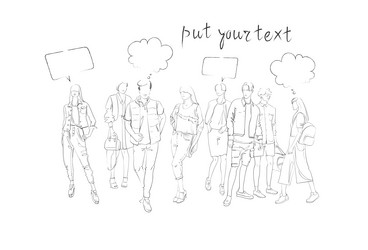 put your text